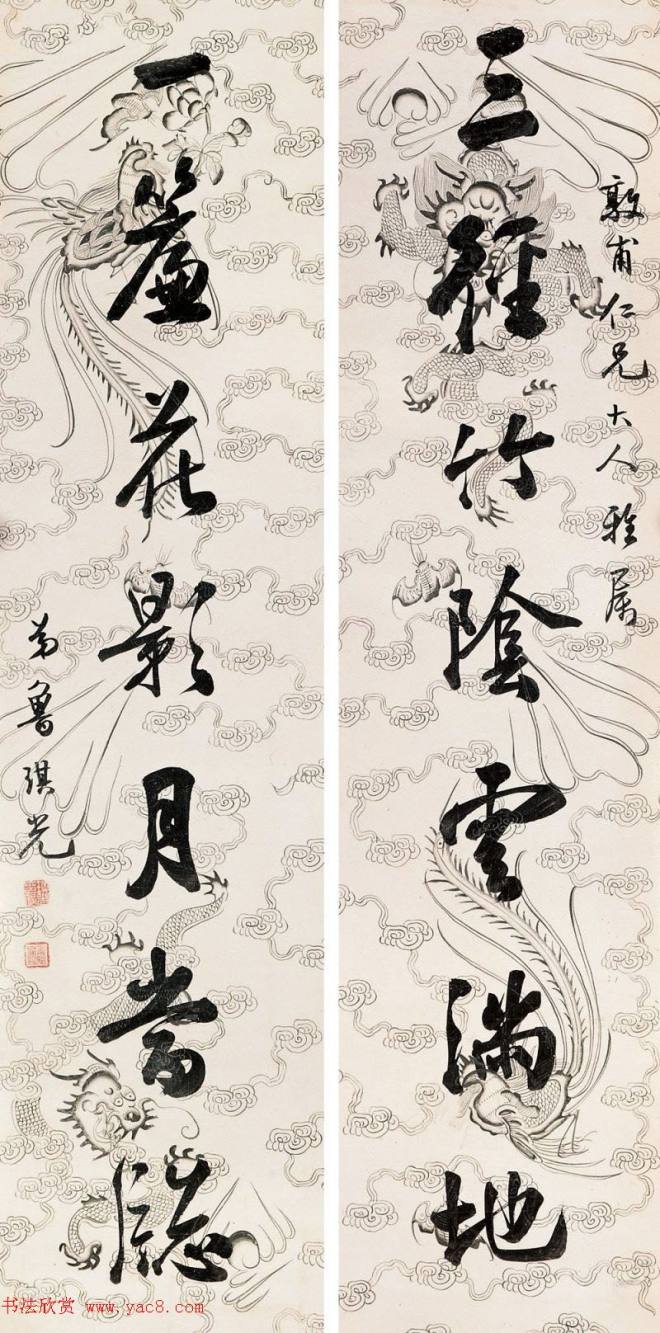 敦甫仁兄大人雅属
三徑竹陰雲滿地
一簾花影月當牕
弟魯琪光
书法欣赏 www.yac8.com